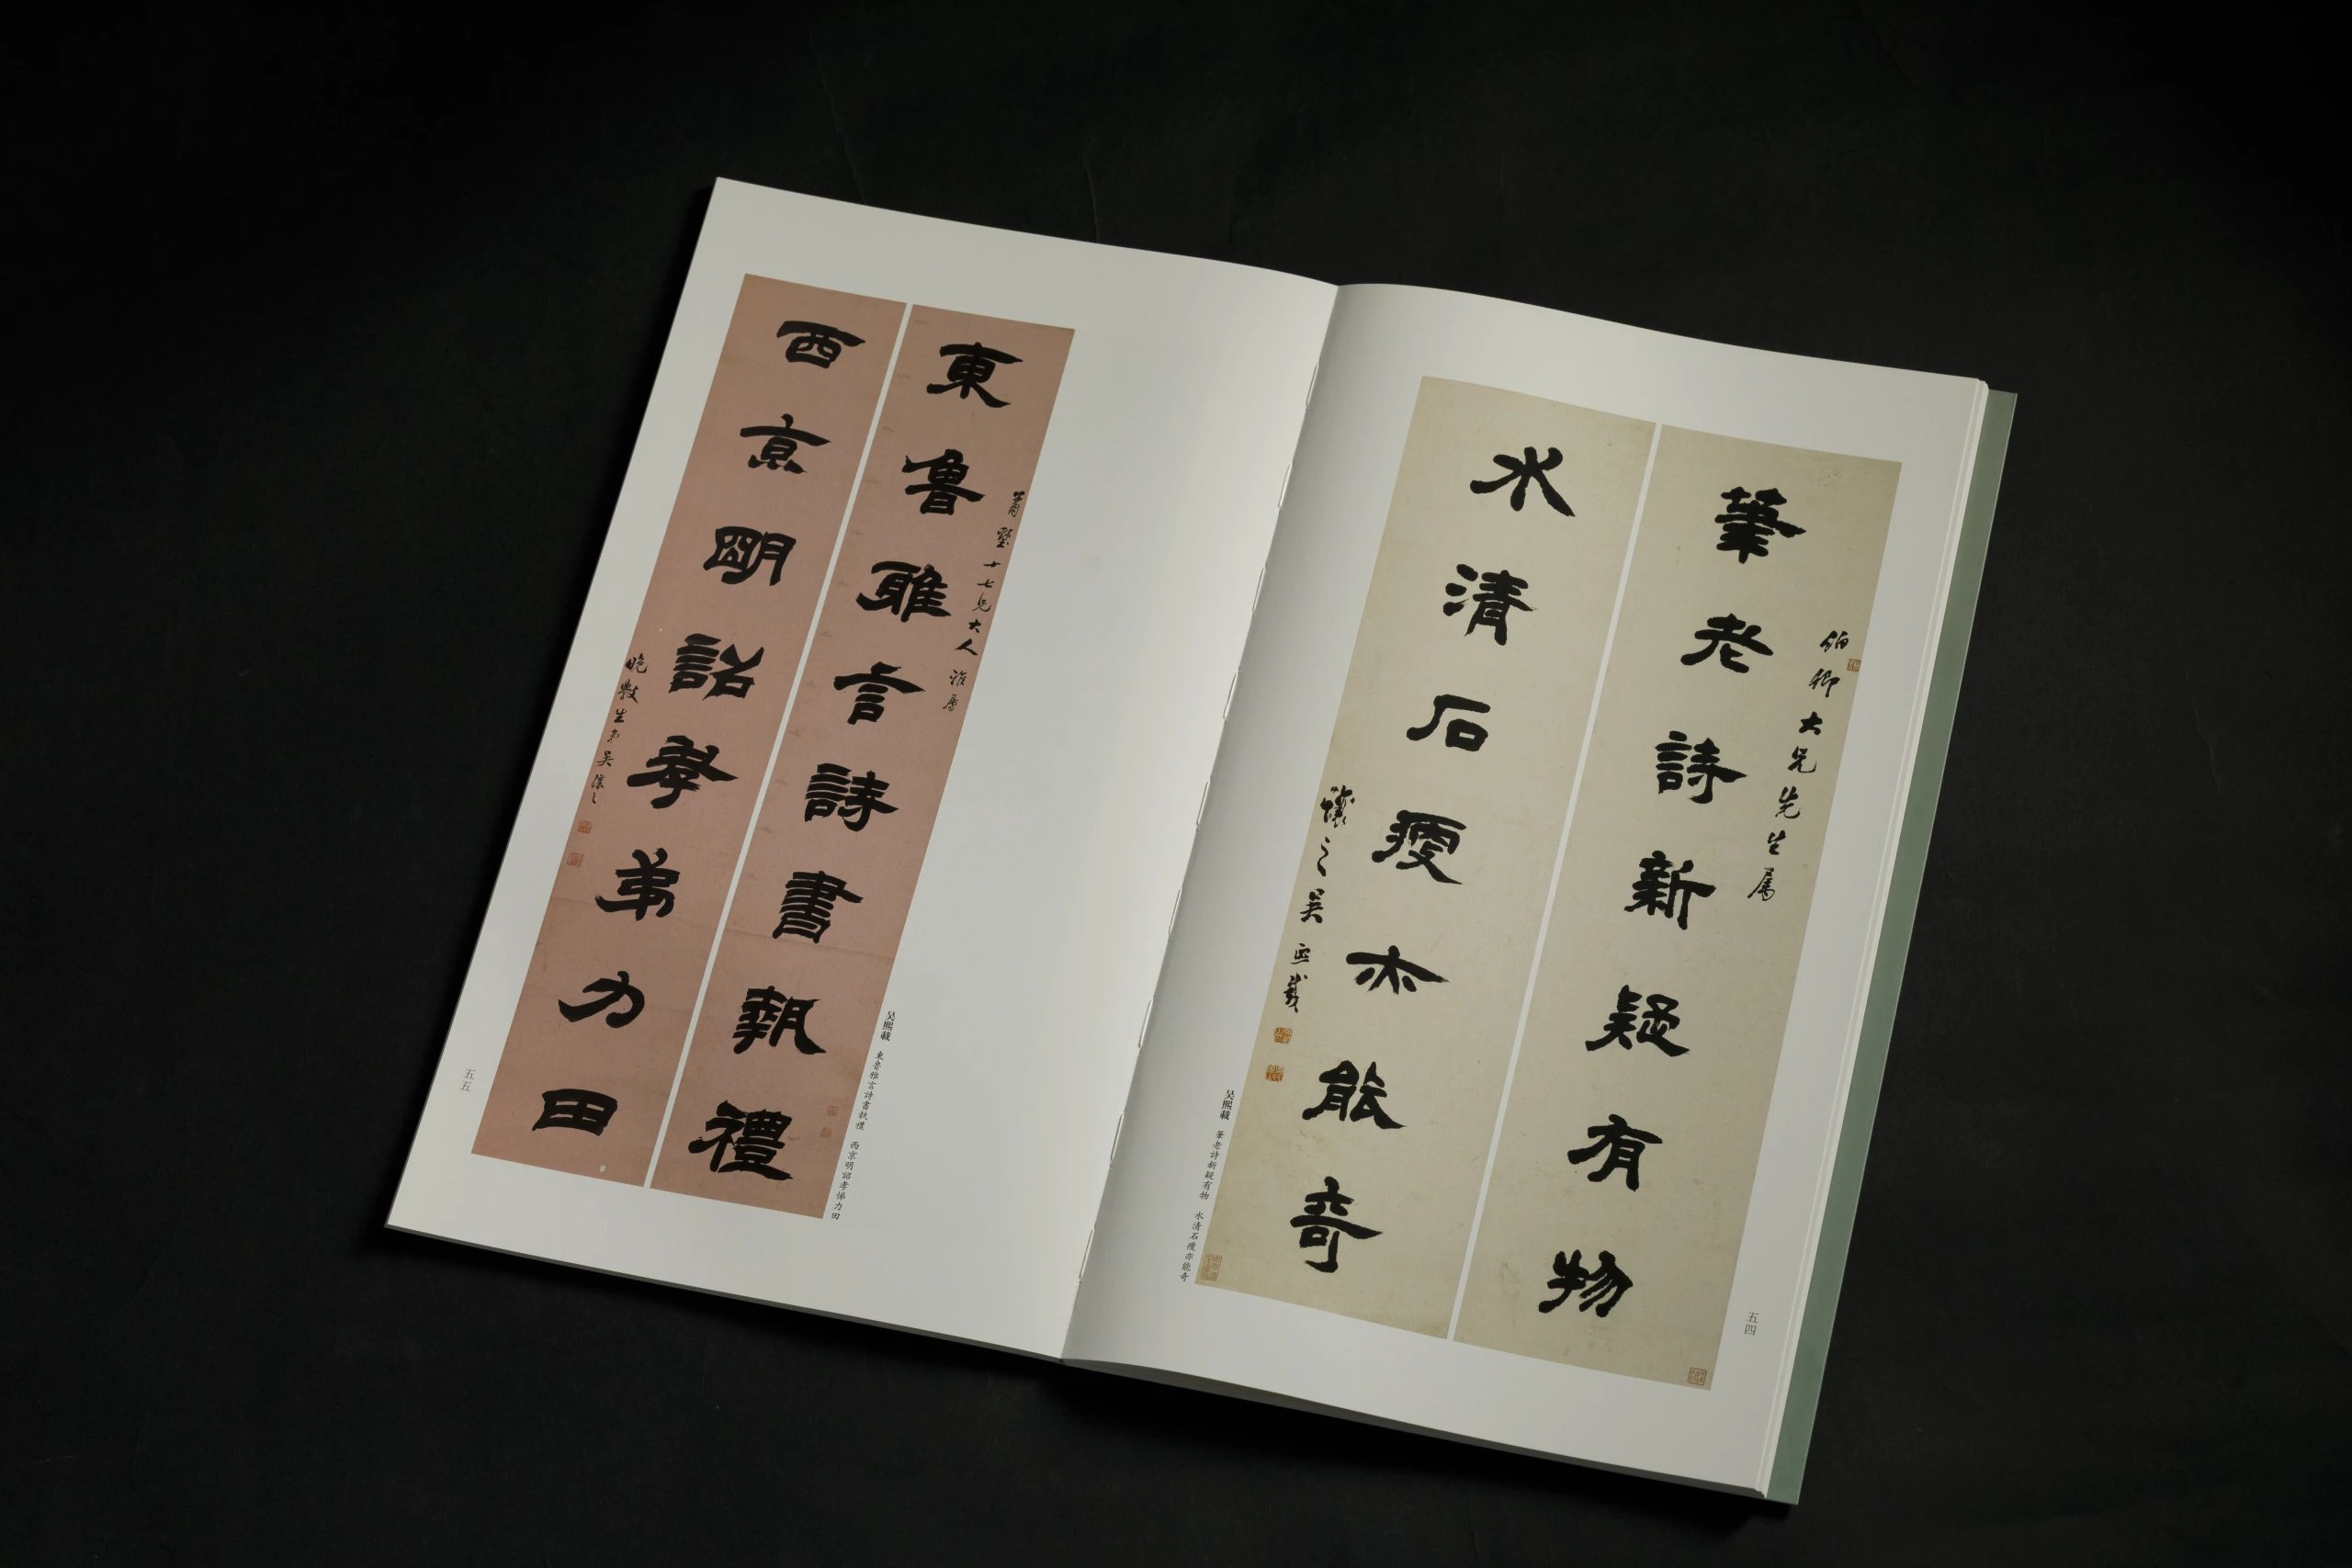 筆老詩新疑有物
伯卿大兄先生属
水清石瘦亦能奇
讓之吴熙載
吴熙載 筆老詩新疑有物 水清石瘦亦能奇
五四
東魯雅言詩書執禮
十七兄大人雅屬
西京明詔孝弟力田
晚斅生弟吴讓之
吴熙載 東魯雅言詩書執禮 西京明詔孝悌力田
五五